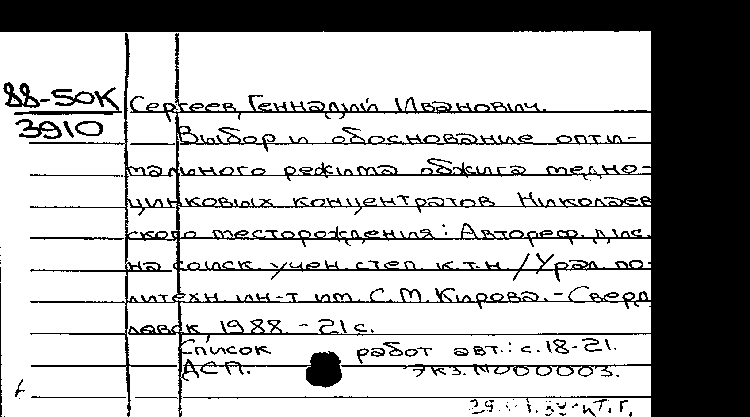 88-50К
3910
Сергеев, Геннадий Иванович.
Выбор и обоснование опти-
мального режима обжига медно-
цинковых концентратов Николаев
ского месторождения: Автореф. дис.
на соиск. учен. степ. к.т.н. / Урал. по-
литехн. ин-т им. С.М. Кирова. - Сверд
ловск, 1988. - 21 с.
Список работ авт.: с. 18-21.
ДСП. Экз. N000003.